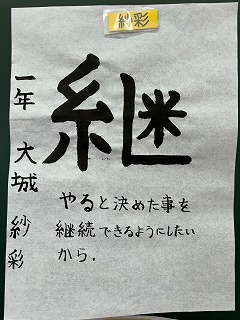 紗彩
継
一年 大城 紗彩
やると決めた事を
継続できるようにしたい
から.